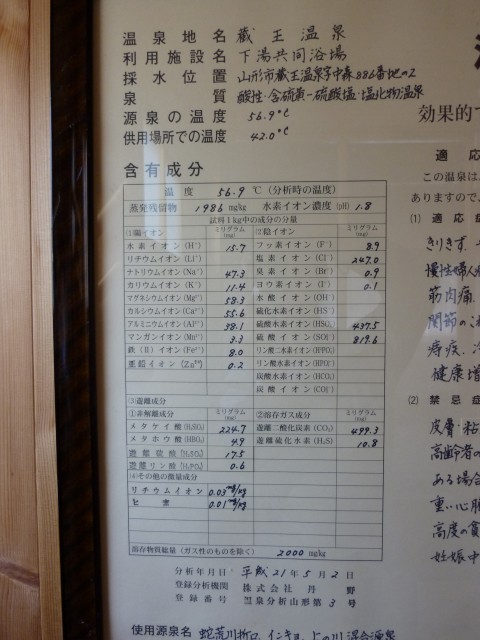 温泉地名 蔵王温泉
利用施設名 下湯共同浴場
採水位置 山形市蔵王温泉字中森886番地の2
泉質 酸性・含硫黄-硫酸塩・塩化物温泉
源泉の温度 56.9℃
供用場所での温度 42.0℃
含有成分
温度 56.9 ℃ (分析時の温度)
蒸発残留物 1986 mg/kg 水素イオン濃度 (pH) 1.8
試料1kg中の成分の分量
(1)陽イオン ミリグラム(mg) (2)陰イオン ミリグラム(mg)
水素イオン(H⁺) 15.7 フッ素イオン(F⁻) 8.9
リチウムイオン(Li⁺) 塩素イオン(Cl⁻) 247.0
ナトリウムイオン(Na⁺) 47.3 臭素イオン(Br⁻) 0.9
カリウムイオン(K⁺) 11.4 ヨウ素イオン(I⁻) 0.1
マグネシウムイオン(Mg²⁺) 58.3 水酸イオン(OH⁻)
カルシウムイオン(Ca²⁺) 55.6 硫化水素イオン(HS⁻)
アルミニウムイオン(Al³⁺) 38.1 硫酸水素イオン(HSO₄⁻) 437.5
マンガンイオン(Mn²⁺) 3.3 硫酸イオン(SO₄²⁻) 819.6
鉄(Ⅱ)イオン(Fe²⁺) 8.0 リン酸二水素イオン(H₂PO₄⁻)
亜鉛イオン(Zn²⁺) 0.2 リン酸水素イオン(HPO₄²⁻)
炭酸水素イオン(HCO₃⁻)
炭酸イオン(CO₃²⁻)
(3)遊離成分
①非解離成分 ミリグラム(mg) ②溶存ガス成分 ミリグラム(mg)
メタケイ酸(H₂SiO₃) 224.7 遊離二酸化炭素(CO₂) 499.3
メタホウ酸(HBO₂) 4.9 遊離硫化水素(H₂S) 10.8
遊離硫酸(H₂SO₄) 17.5
遊離リン酸(H₃PO₄) 0.6
(4)その他の微量成分
リチウムイオン 0.03mg/kg
ヒ素 0.01mg/kg
溶存物質総量(ガス性のものを除く) 2000 mg/kg
分析年月日 平成21年5月2日
登録分析機関 株式会社 丹野
登録番号 温泉分析山形第3号
使用源泉名
効果的
適応
この温泉は、
ありますので、
(1) 適応症
きりきず、
慢性婦人
筋肉痛、
関節の
痔疾、冷
健康増
(2) 禁忌症
皮膚・粘
高齢者の
ある場合
重い心臓
高度の貧
妊娠中